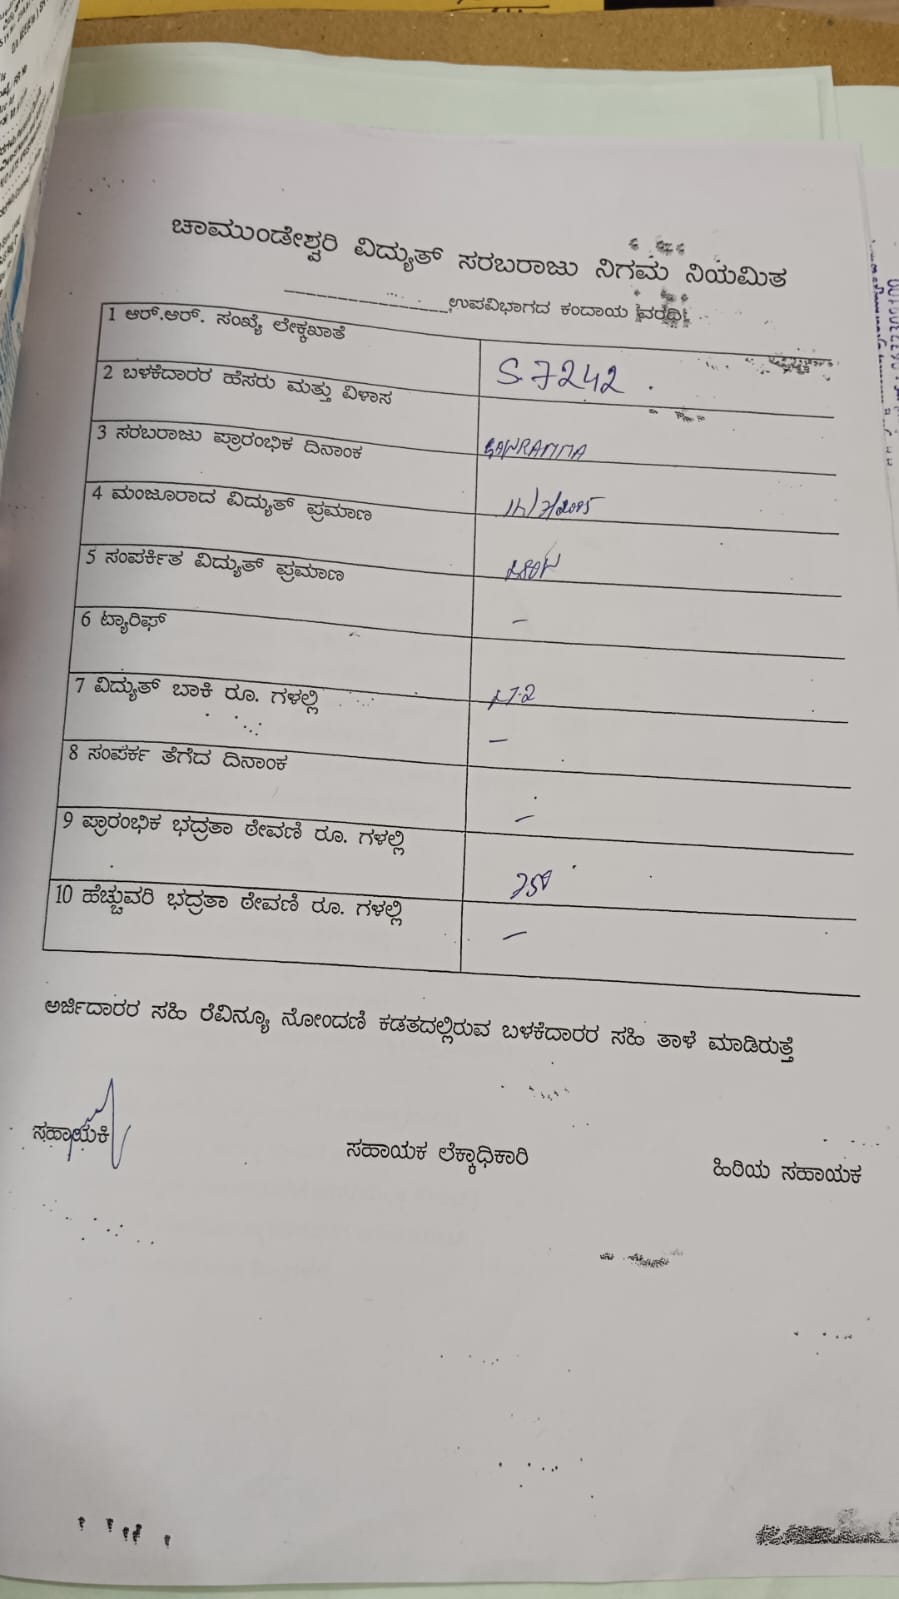 ಚಾಮುಂಡೇಶ್ವರಿ ವಿದ್ಯುತ್ ಸರಬರಾಜು ನಿಗಮ ನಿಯಮಿತ
ಉಪವಿಭಾಗದ ಕಂದಾಯ ವರದಿ
1 ಆರ್.ಆರ್. ಸಂಖ್ಯೆ ಲೆಕ್ಕಖಾತೆ S 7242
2 ಬಳಕೆದಾರರ ಹೆಸರು ಮತ್ತು ವಿಳಾಸ GAWRAMMA
3 ಸರಬರಾಜು ಪ್ರಾರಂಭಿಕ ದಿನಾಂಕ
4 ಮಂಜೂರಾದ ವಿದ್ಯುತ್ ಪ್ರಮಾಣ
5 ಸಂಪರ್ಕಿತ ವಿದ್ಯುತ್ ಪ್ರಮಾಣ –
6 ಟ್ಯಾರಿಫ್
7 ವಿದ್ಯುತ್ ಬಾಕಿ ರೂ. ಗಳಲ್ಲಿ –
8 ಸಂಪರ್ಕ ತೆಗೆದ ದಿನಾಂಕ –
9 ಪ್ರಾರಂಭಿಕ ಭದ್ರತಾ ಠೇವಣಿ ರೂ. ಗಳಲ್ಲಿ
10 ಹೆಚ್ಚುವರಿ ಭದ್ರತಾ ಠೇವಣಿ ರೂ. ಗಳಲ್ಲಿ –
ಅರ್ಜಿದಾರರ ಸಹಿ ರೆವಿನ್ಯೂ ನೋಂದಣಿ ಕಡತದಲ್ಲಿರುವ ಬಳಕೆದಾರರ ಸಹಿ ತಾಳೆ ಮಾಡಿರುತ್ತೆ
ಸಹಾಯಕಿ ಸಹಾಯಕ ಲೆಕ್ಕಾಧಿಕಾರಿ ಹಿರಿಯ ಸಹಾಯಕ